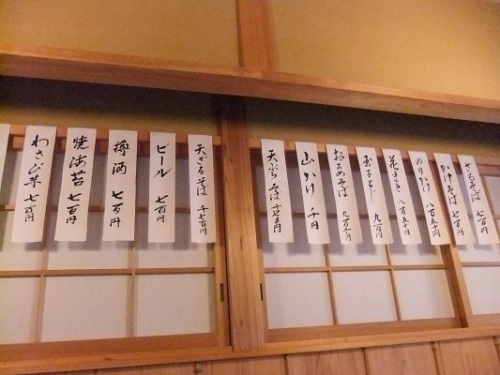 ざるそば 七百円
かけそば 七百円
のりかけ 八百五十円
花まき 八百五十円
玉子とじ 九百円
おかめそば 九百五十円
山かけ 千円
天ぷらそば 千七百円
天ざるそば 千七百円
ビール 七百円
樽酒 七百円
焼海苔 七百円
わさび芋 七百円